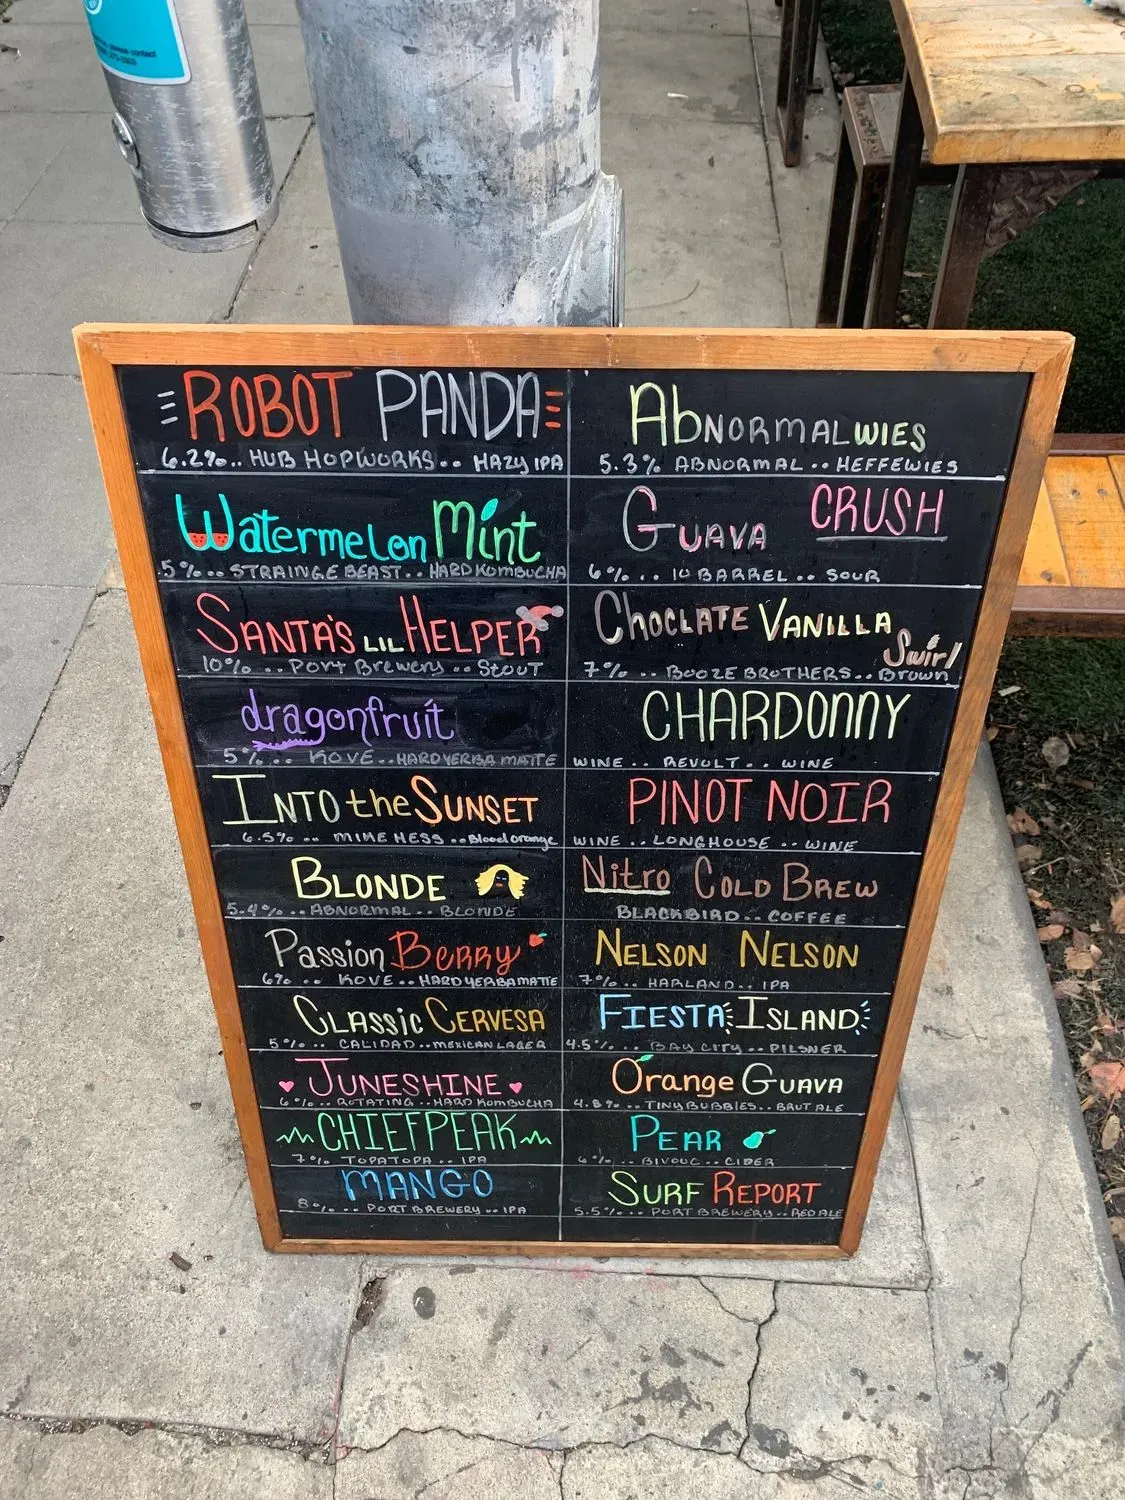 please contact
ROBOT PANDA
6.2%.. HUB HOPWORKS.. HAZY IPA
Watermelon Mint
5%... STRAINGE BEAST.. HARD KOMBUCHA
SANTA'S LIL HELPER
10% .. PORT BREWERY .. STOUT
dragonfruit
5%... KOVE.. HARD YERBA MATTE
INTO the SUNSET
6.5% .. MIKE HESS .. Blood orange
BLONDE
5.4%... ABNORMAL.. BLONDE
Passion BERRY
6% .. KOVE.. HARD YERBA MATTE
CLASSIC CERVESA
5% .. CALIDAD.. MEXICAN LAGER
JUNESHINE
6%.. ROTATING.. HARD KOMBUCHA
CHIEF PEAK
7% TOPA TOPA.. IPA
MANGO
8% .. PORT BREWERY .. IPA
ABNORMALWIES
5.3% ABNORMAL.. HEFFEWIES
GUAVA CRUSH
6%... 10 BARREL .. SOUR
CHOCLATE VANILLA Swirl
7% .. BOOZE BROTHERS.. Brown
CHARDONNY
WINE.. REVOLT.. WINE
PINOT NOIR
WINE .. LONGHOUSE .. WINE
Nitro COLD BREW
BLACKBIRD.. COFFEE
NELSON NELSON
7%.. HARLAND.. IPA
FIESTA ISLAND
4.5%.. BAY CITY.. PILSNER
Orange GUAVA
4.8% .. TINY BUBBLES.. BRUT ALE
PEAR
6%.. BIVOUC.. CIDER
SURF REPORT
5.5%... PORT BREWERY.. RED ALE